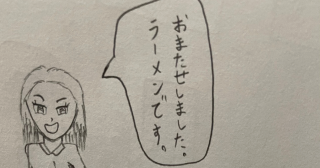 おまたせしました。
ラーメンです。